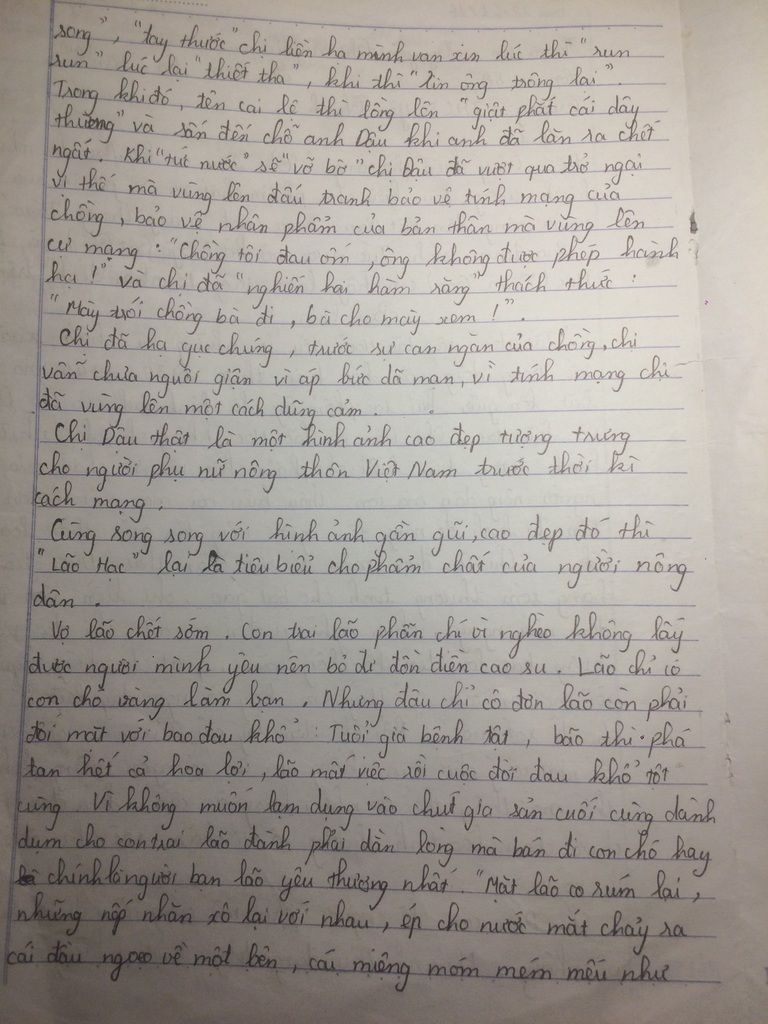 song", "tay thước" chị liền hạ mình van xin lúc thì "run
run" lúc lại "thiết tha", khi thì "xin ông trông lại".
Trong khi đó, tên cai lệ thì lồng lên "giật phắt cái dây
thừng" và sấn đến chỗ anh Dậu khi anh đã lăn ra chết
ngất. Khi "tức nước" sẽ "vỡ bờ" chị Dậu đã vượt qua trở ngại
vì thế mà vùng lên đấu tranh bảo vệ tính mạng của
chồng, bảo vệ nhân phẩm của bản thân mà vùng lên
cự mạng: "Chồng tôi đau ốm, ông không được phép hành
hạ!" và chị đã "nghiến hai hàm răng" thách thức:
"Mày trói chồng bà đi, bà cho mày xem!".
Chị đã hạ gục chúng, trước sự can ngăn của chồng, chị
vẫn chưa nguôi giận vì áp bức dã man, vì tính mạng chị
đã vùng lên một cách dũng cảm.
Chị Dậu thật là một hình ảnh cao đẹp tượng trưng
cho người phụ nữ nông thôn Việt Nam trước thời kì
cách mạng.
Cùng song song với hình ảnh gần gũi, cao đẹp đó thì
"Lão Hạc" lại là tiêu biểu cho phẩm chất của người nông
dân.
Vợ lão chết sớm. Con trai lão phẫn chí vì nghèo không lấy
được người mình yêu nên bỏ đi đồn điền cao su. Lão chỉ có
con chó vàng làm bạn. Nhưng đâu chỉ cô đơn lão còn phải
đối mặt với bao đau khổ: Tuổi già bệnh tật, bão thì phá
tan hết cả hoa lợi, lão mất việc rồi cuộc đời đau khổ tột
cùng. Vì không muốn lạm dụng vào chút gia sản cuối cùng dành
dụm cho con trai lão đành phải dằn lòng mà bán đi con chó hay
chính là người bạn lão yêu thương nhất. "Mặt lão co rúm lại,
những nếp nhăn xô lại với nhau, ép cho nước mắt chảy ra
cái đầu ngoẹo về một bên, cái miệng móm mém mếu như